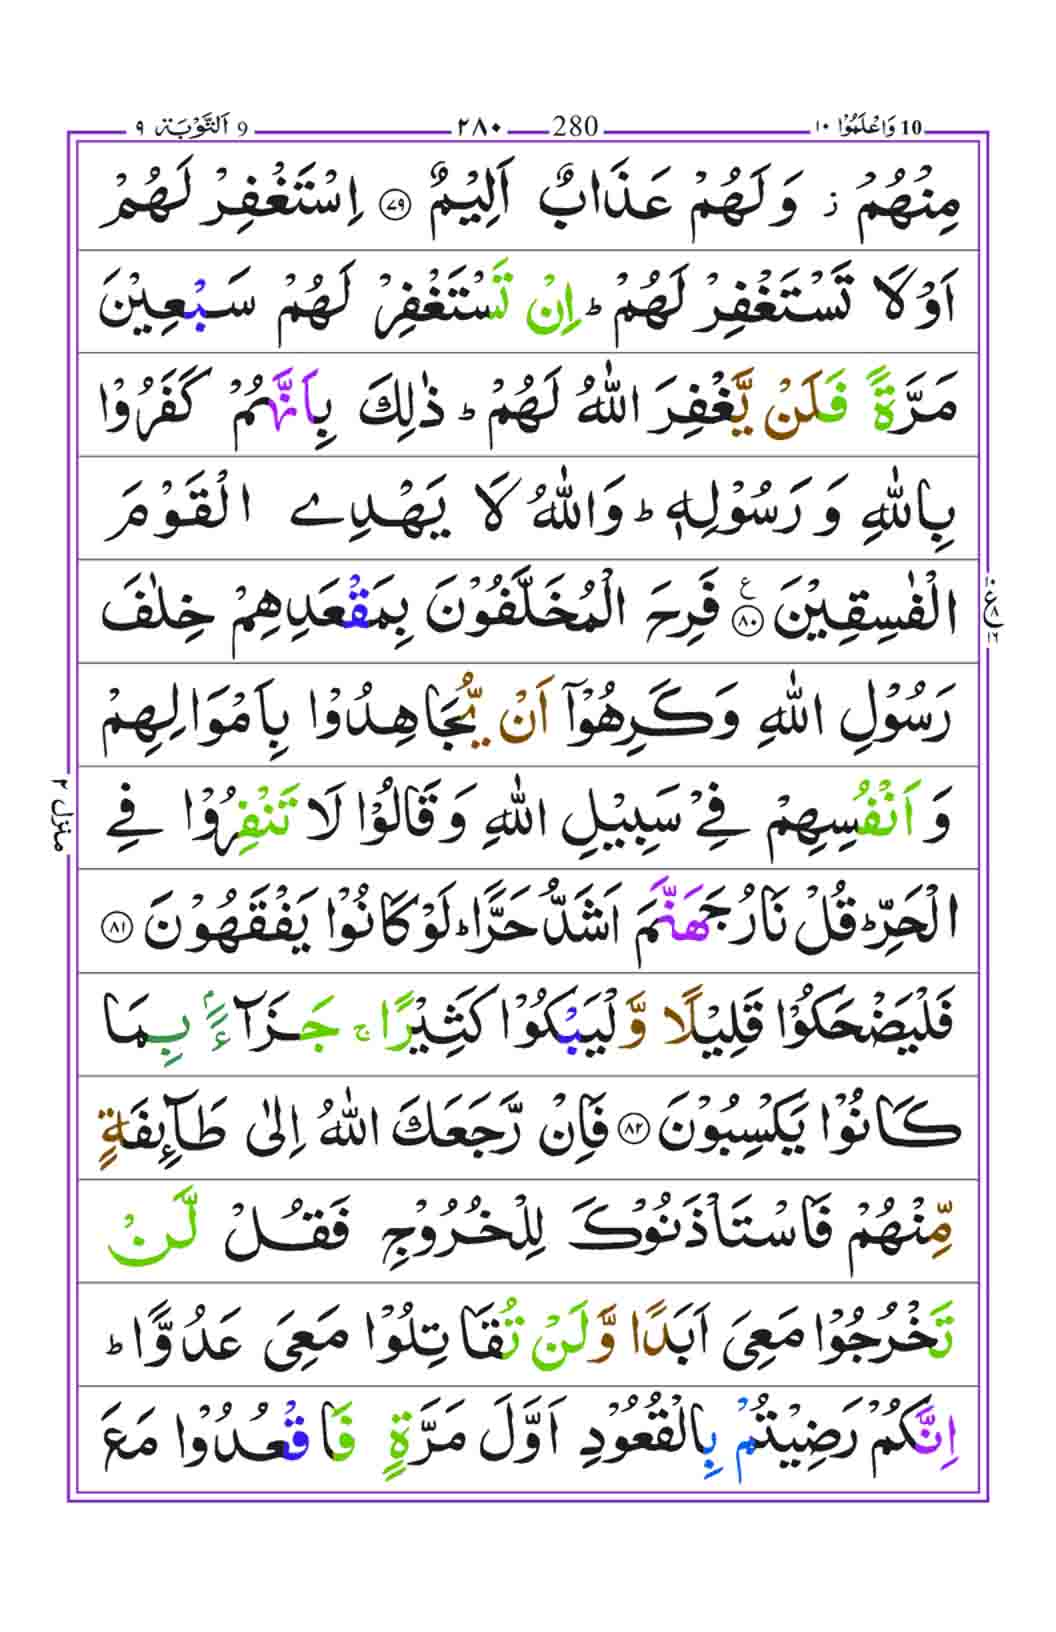 10 وَاعْلَمُوْٓا ١٠ 280 ٢٨٠ 9 اَلتَّوْبَة ٩
مِنْهُمْ ز وَلَهُمْ عَذَابٌ اَلِيْمٌ ﴿٧٩﴾ اِسْتَغْفِرْ لَهُمْ
اَوْلَا تَسْتَغْفِرْ لَهُمْ ؕ اِنْ تَسْتَغْفِرْ لَهُمْ سَبْعِيْنَ
مَرَّةً فَلَنْ يَّغْفِرَ اللّٰهُ لَهُمْ ؕ ذٰلِكَ بِاَنَّهُمْ كَفَرُوْا
بِاللّٰهِ وَ رَسُوْلِهٖ ؕ وَاللّٰهُ لَا يَهْدِے الْقَوْمَ
الْفٰسِقِيْنَ ﴿٨٠﴾ ع فَرِحَ الْمُخَلَّفُوْنَ بِمَقْعَدِهِمْ خِلٰفَ
رَسُوْلِ اللّٰهِ وَكَرِهُوْٓا اَنْ يُّجَاهِدُوْا بِاَمْوَالِهِمْ
وَ اَنْفُسِهِمْ فِےْ سَبِيْلِ اللّٰهِ وَقَالُوْا لَا تَنْفِرُوْا فِے
الْحَرِّ ؕ قُلْ نَارُ جَهَنَّمَ اَشَدُّ حَرًّا ؕ لَوْ كَانُوْا يَفْقَهُوْنَ ﴿٨١﴾
فَلْيَضْحَكُوْا قَلِيْلًا وَّلْيَبْكُوْا كَثِيْرًا ج جَزَآءًۢ بِمَا
كَانُوْا يَكْسِبُوْنَ ﴿٨٢﴾ فَاِنْ رَّجَعَكَ اللّٰهُ اِلٰى طَآئِفَةٍ
مِّنْهُمْ فَاسْتَاْذَنُوْكَ لِلْخُرُوْجِ فَقُلْ لَّنْ
تَخْرُجُوْا مَعِىَ اَبَدًا وَّلَنْ تُقَاتِلُوْا مَعِىَ عَدُوًّا ؕ
اِنَّكُمْ رَضِيْتُمْ بِالْقُعُوْدِ اَوَّلَ مَرَّةٍ فَاقْعُدُوْا مَعَ
ع ٨ ١٠ ١٦
منزل ٢